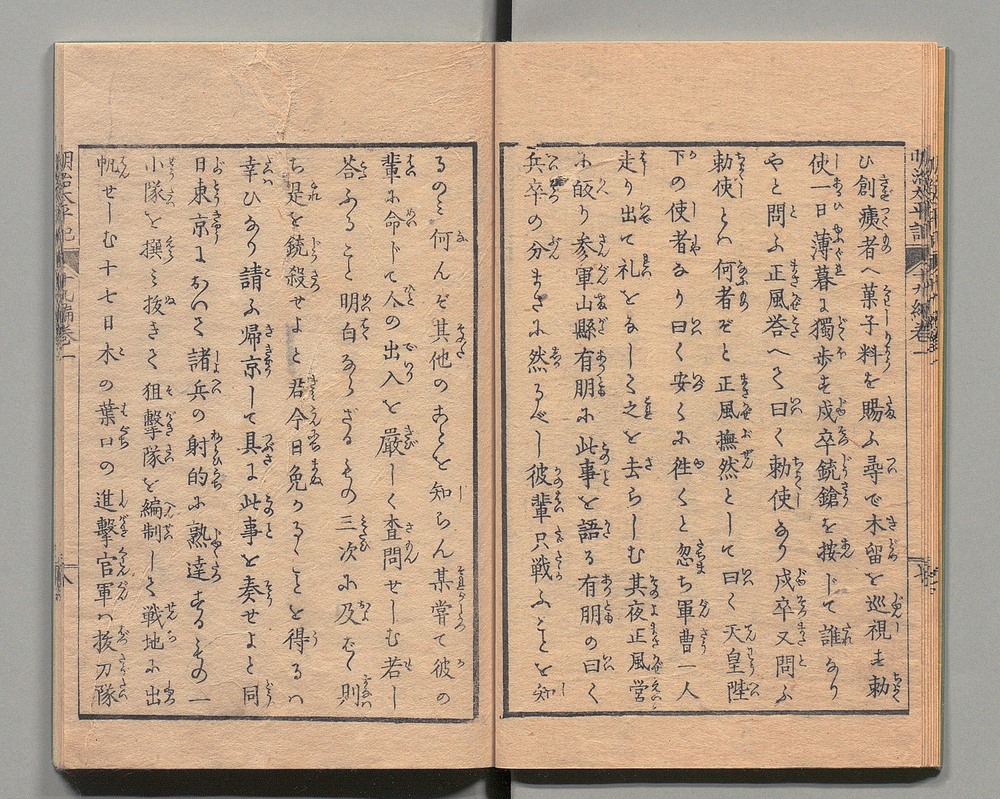 ひ創痍者へ菓子料を賜ふ尋で木留を巡視も勅
使一日薄暮に獨歩も戍卒銃鎗を按じて誰なり
やと問ふ正風答へて曰く勅使なり戍卒又問ふ
勅使とハ何者ぞと正風撫然として曰く天皇陛
下の使者なり曰く安くに徃くと忽ち軍曹一人
走り出て礼をなして之を去らしむ其夜正風営
に皈り参軍山縣有朋に此事を語る有朋の曰く
兵卒の分まさに然るべし彼輩只戦ふことを知
るのミ何んぞ其他のことを知らん某甞て彼の
輩に命じて人の出入を厳しく査問せしむ若し
答ふること明白ならざるもの三次に及ばゞ則
ち是を銃殺せよと君今日免かるゝことを得るハ
幸ひなり請ふ帰京して具に此事を奏せよと同
日東京において諸兵の射的に熟達するもの一
小隊を撰ミ抜きて狙撃隊を編制して戦地に出
帆せしむ十七日木の葉口の進撃官軍ハ抜刀隊
明治太平記
九編巻一
八